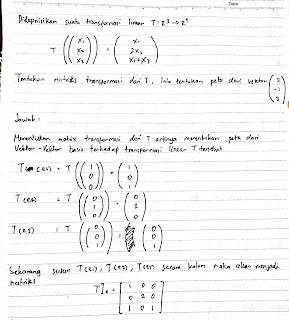 Date
Didefinisikan suatu transformasi linear T : R³ → R³
T ( ( x₁ x₂ x₃ ) ) = ( x₁ 2x₂ x₁+x₃ )
Tentukan matriks transformasi dari T, lalu tentukan peta dari vektor ( 2 -1 3 )
Jawab :
Menentukan matrix transformasi dari T artinya menentukan peta dari
Vektor-Vektor basis terhadap transformasi linear T tersebut
T (e₁) = T ( ( 1 0 0 ) ) = ( 1 0 1 )
T(e₂) = T ( ( 0 1 0 ) ) = ( 0 2 0 )
T(e₃) = T ( ( 0 0 1 ) ) = ( 0 0 1 )
Sekarang susun T(e₁), T(e₂), T(e₃) secara kolom maka akan menjadi
matriks
T]ₑ = [ 1 0 0
0 2 0
1 0 1 ]